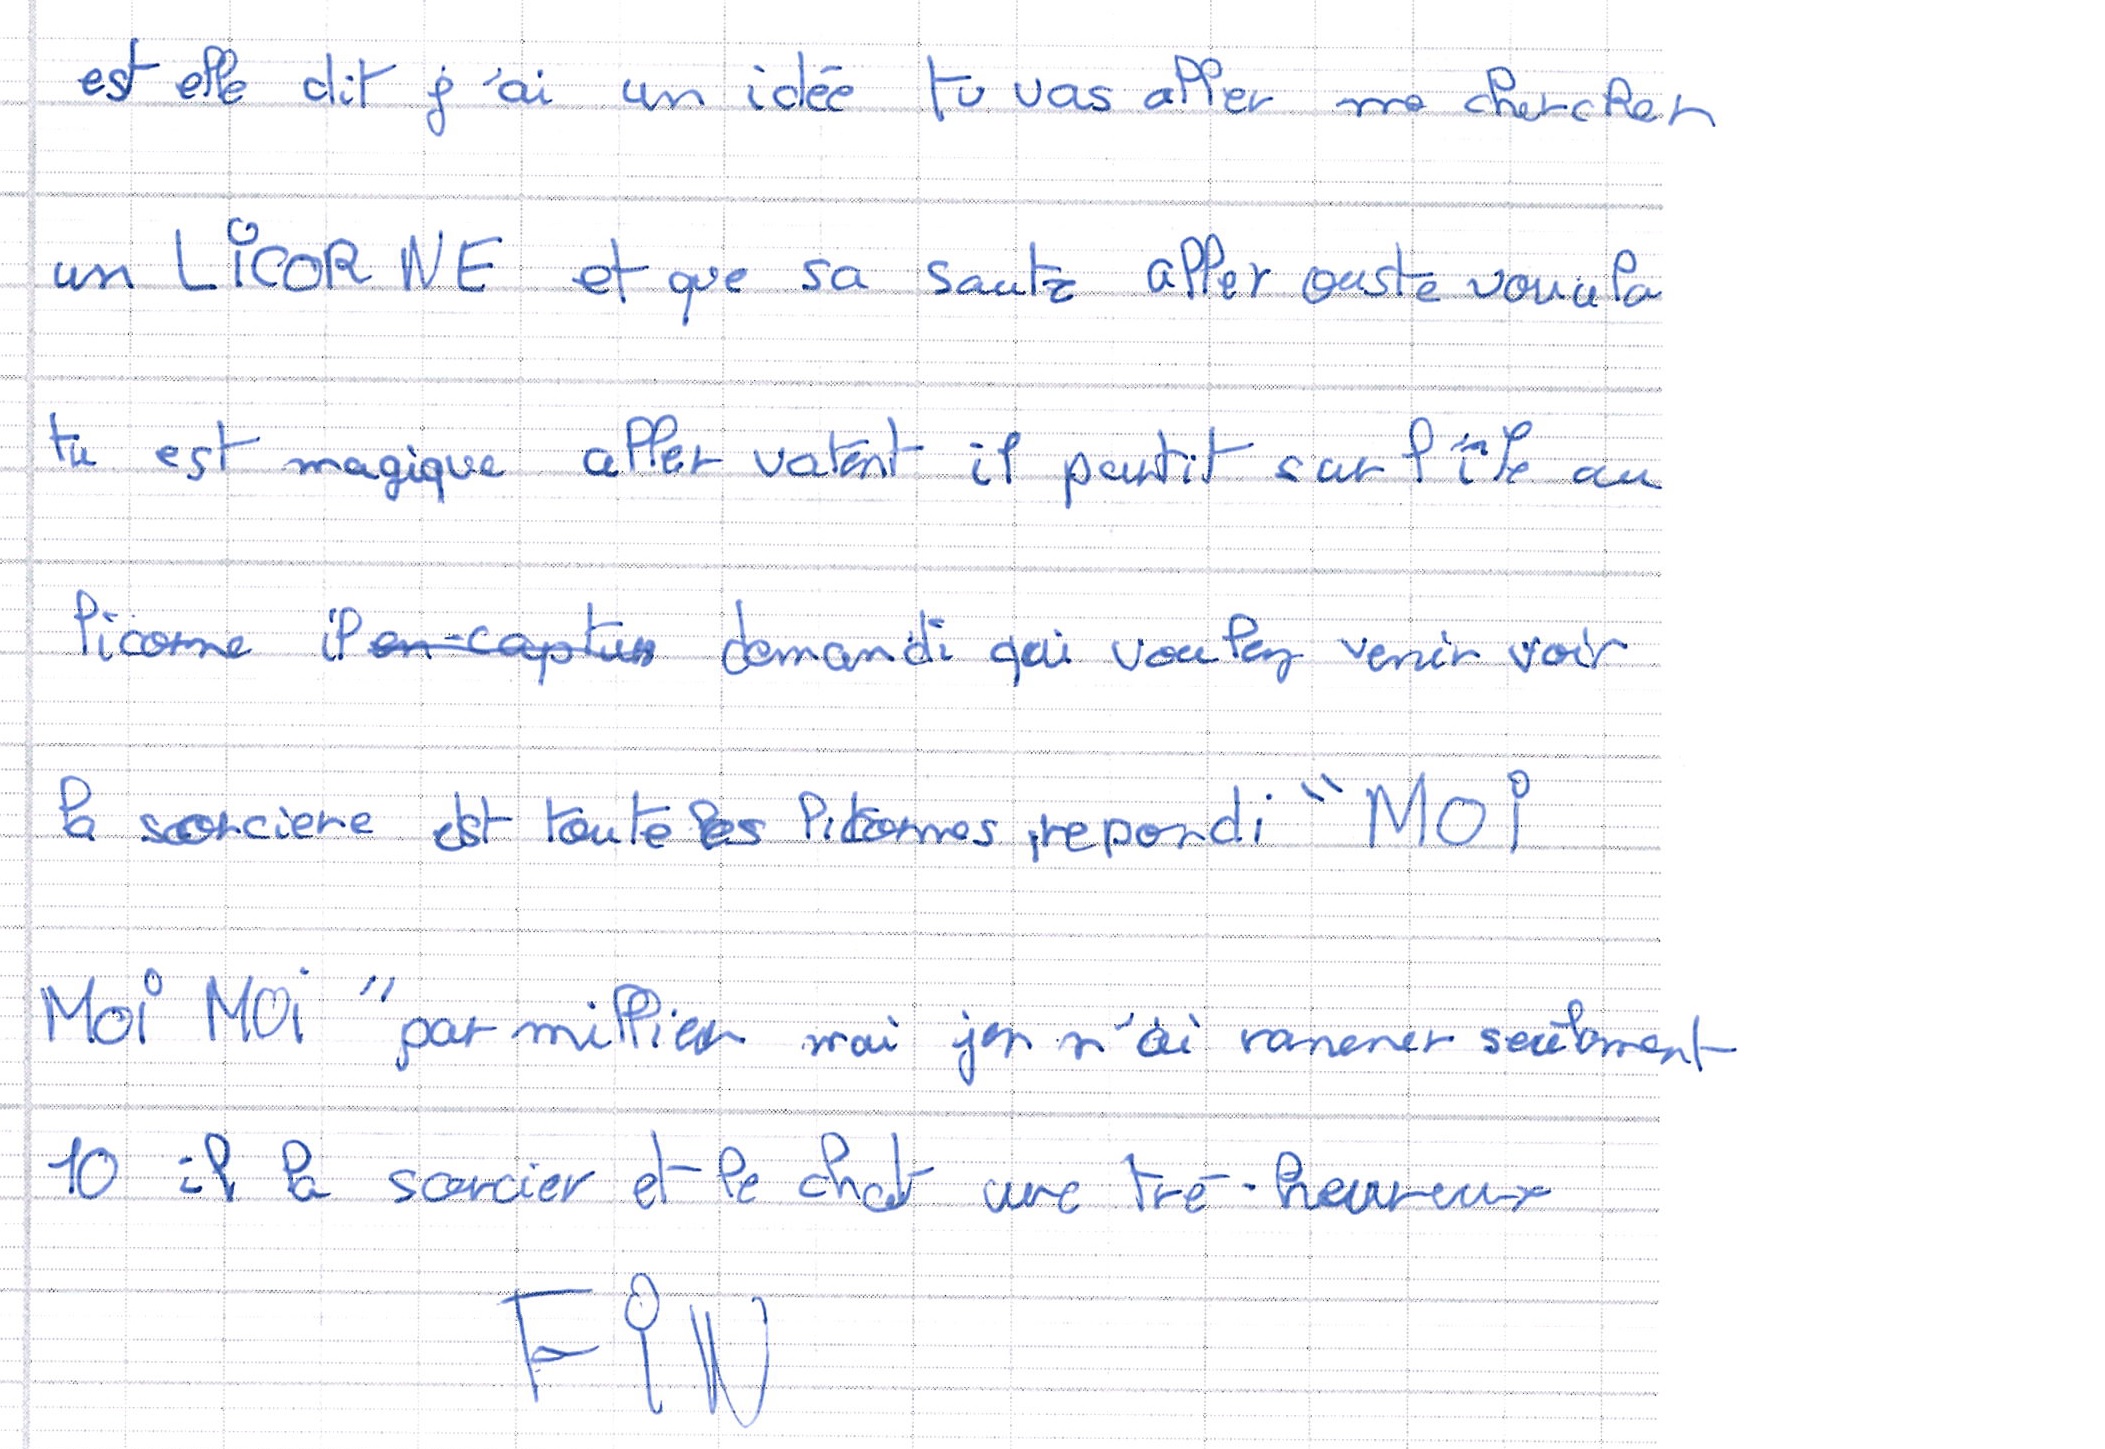 est elle dit j'ai un idée tu vas aller me chercher
un LiCORNE et que sa saute aller ouste vouula
tu est magique aller vatent il partit sur l'île au
licorne il en captur demandi qui vouley venir voir
la sorciere est toute les licornes repondi "MOi
Moi MOi" par millier mai jen n'ai ramener seulement
10 il la sorcier et le chat une tré heureux
FiN